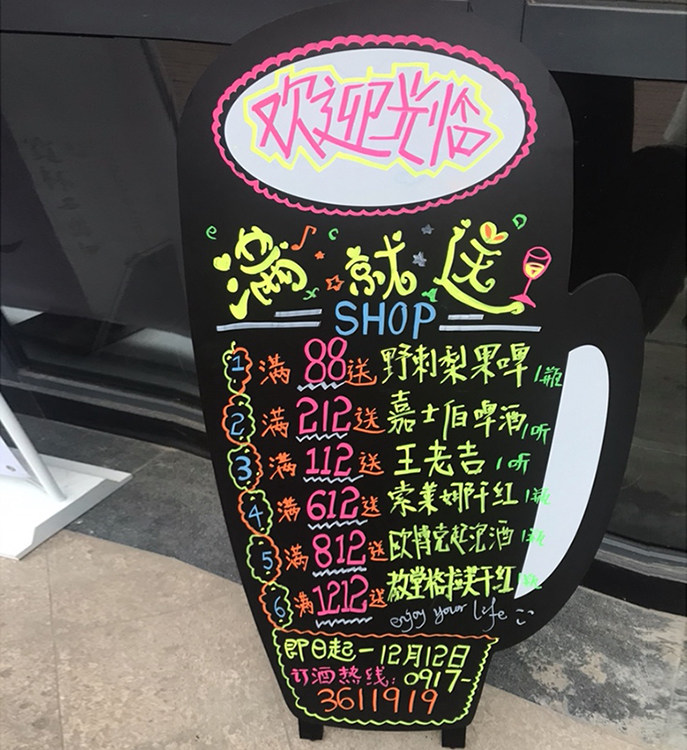 欢迎光临
满就送
SHOP
1 满88送野刺梨果啤1瓶
2 满212送嘉士伯啤酒1听
3 满112送王老吉1听
4 满612送索莱娜干红1瓶
5 满812送欧博克起泡酒1瓶
6 满1212送教堂格拉芙干红1瓶
enjoy your life
即日起-12月12日
订酒热线:0917-
3611919